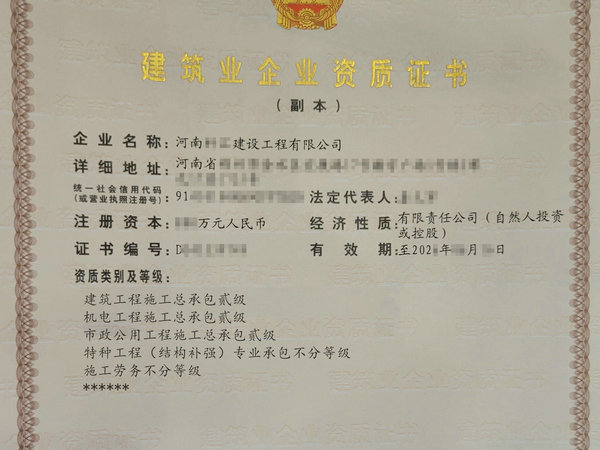 建筑业企业资质证书
（副本）
企业名称：河南 建设工程有限公司
详细地址：河南省
统一社会信用代码
（或营业执照注册号）：91
法定代表人：
注册资本： 万元人民币
经济性质：有限责任公司（自然人投资
或控股）
证书编号：D
有效期：至202 年 月 日
资质类别及等级：
建筑工程施工总承包贰级
机电工程施工总承包贰级
市政公用工程施工总承包贰级
特种工程（结构补强）专业承包不分等级
施工劳务不分等级
******